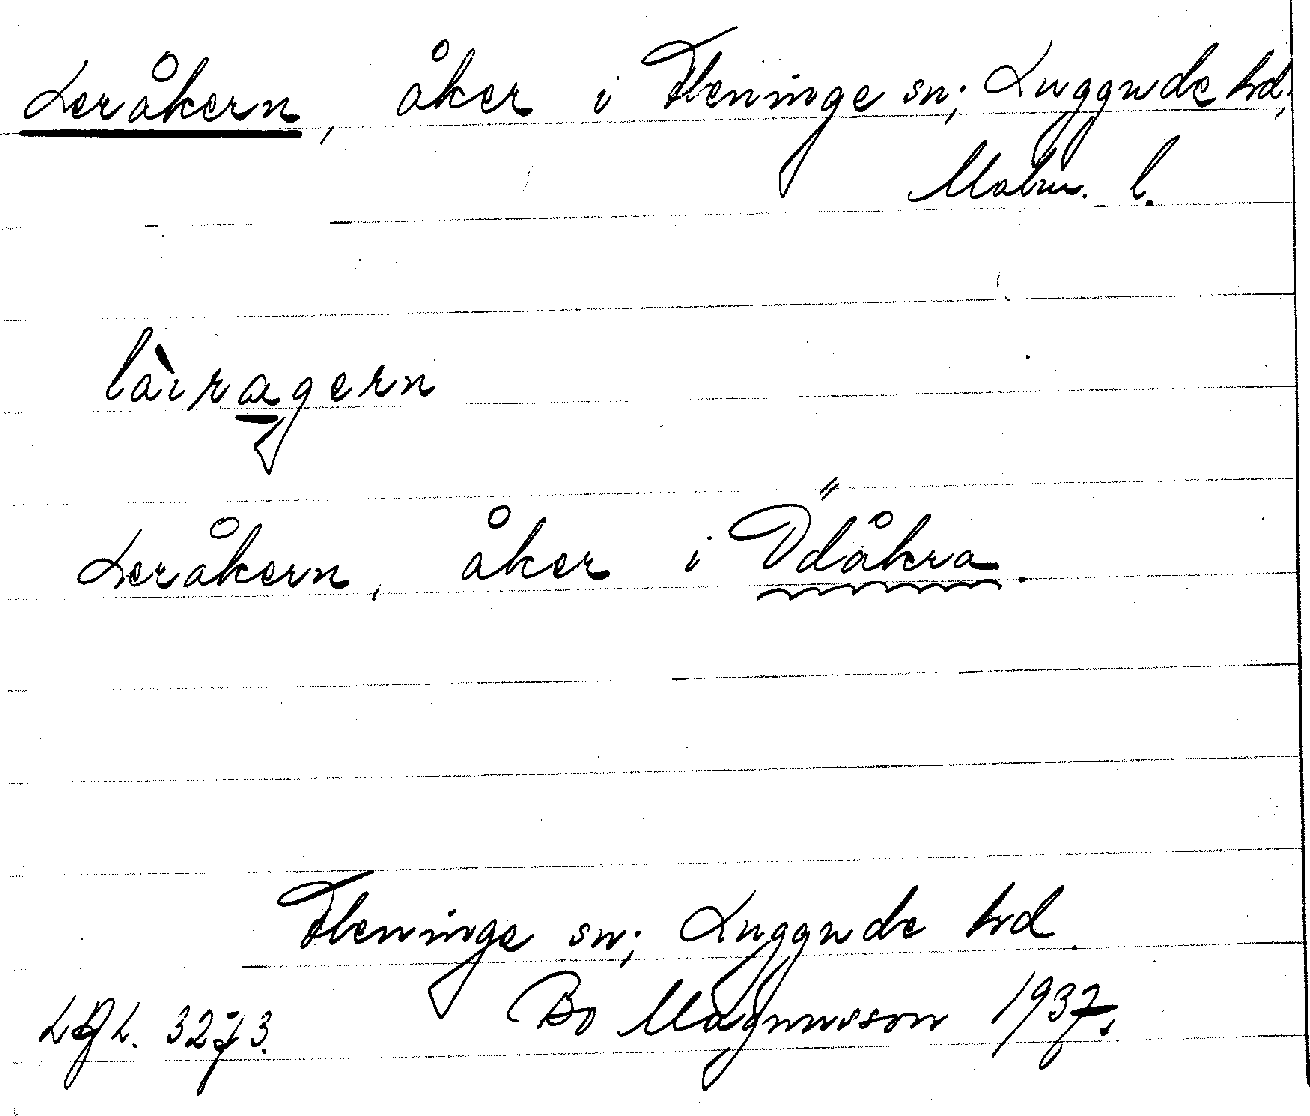 Leråkern, åker i Fleninge sn; Luggude hd;
Malm. l.
làiragern
Leråkern, åker i Ödåkra.
Fleninge sn; Luggude hd.
Bo Magnusson 1937.
3273.